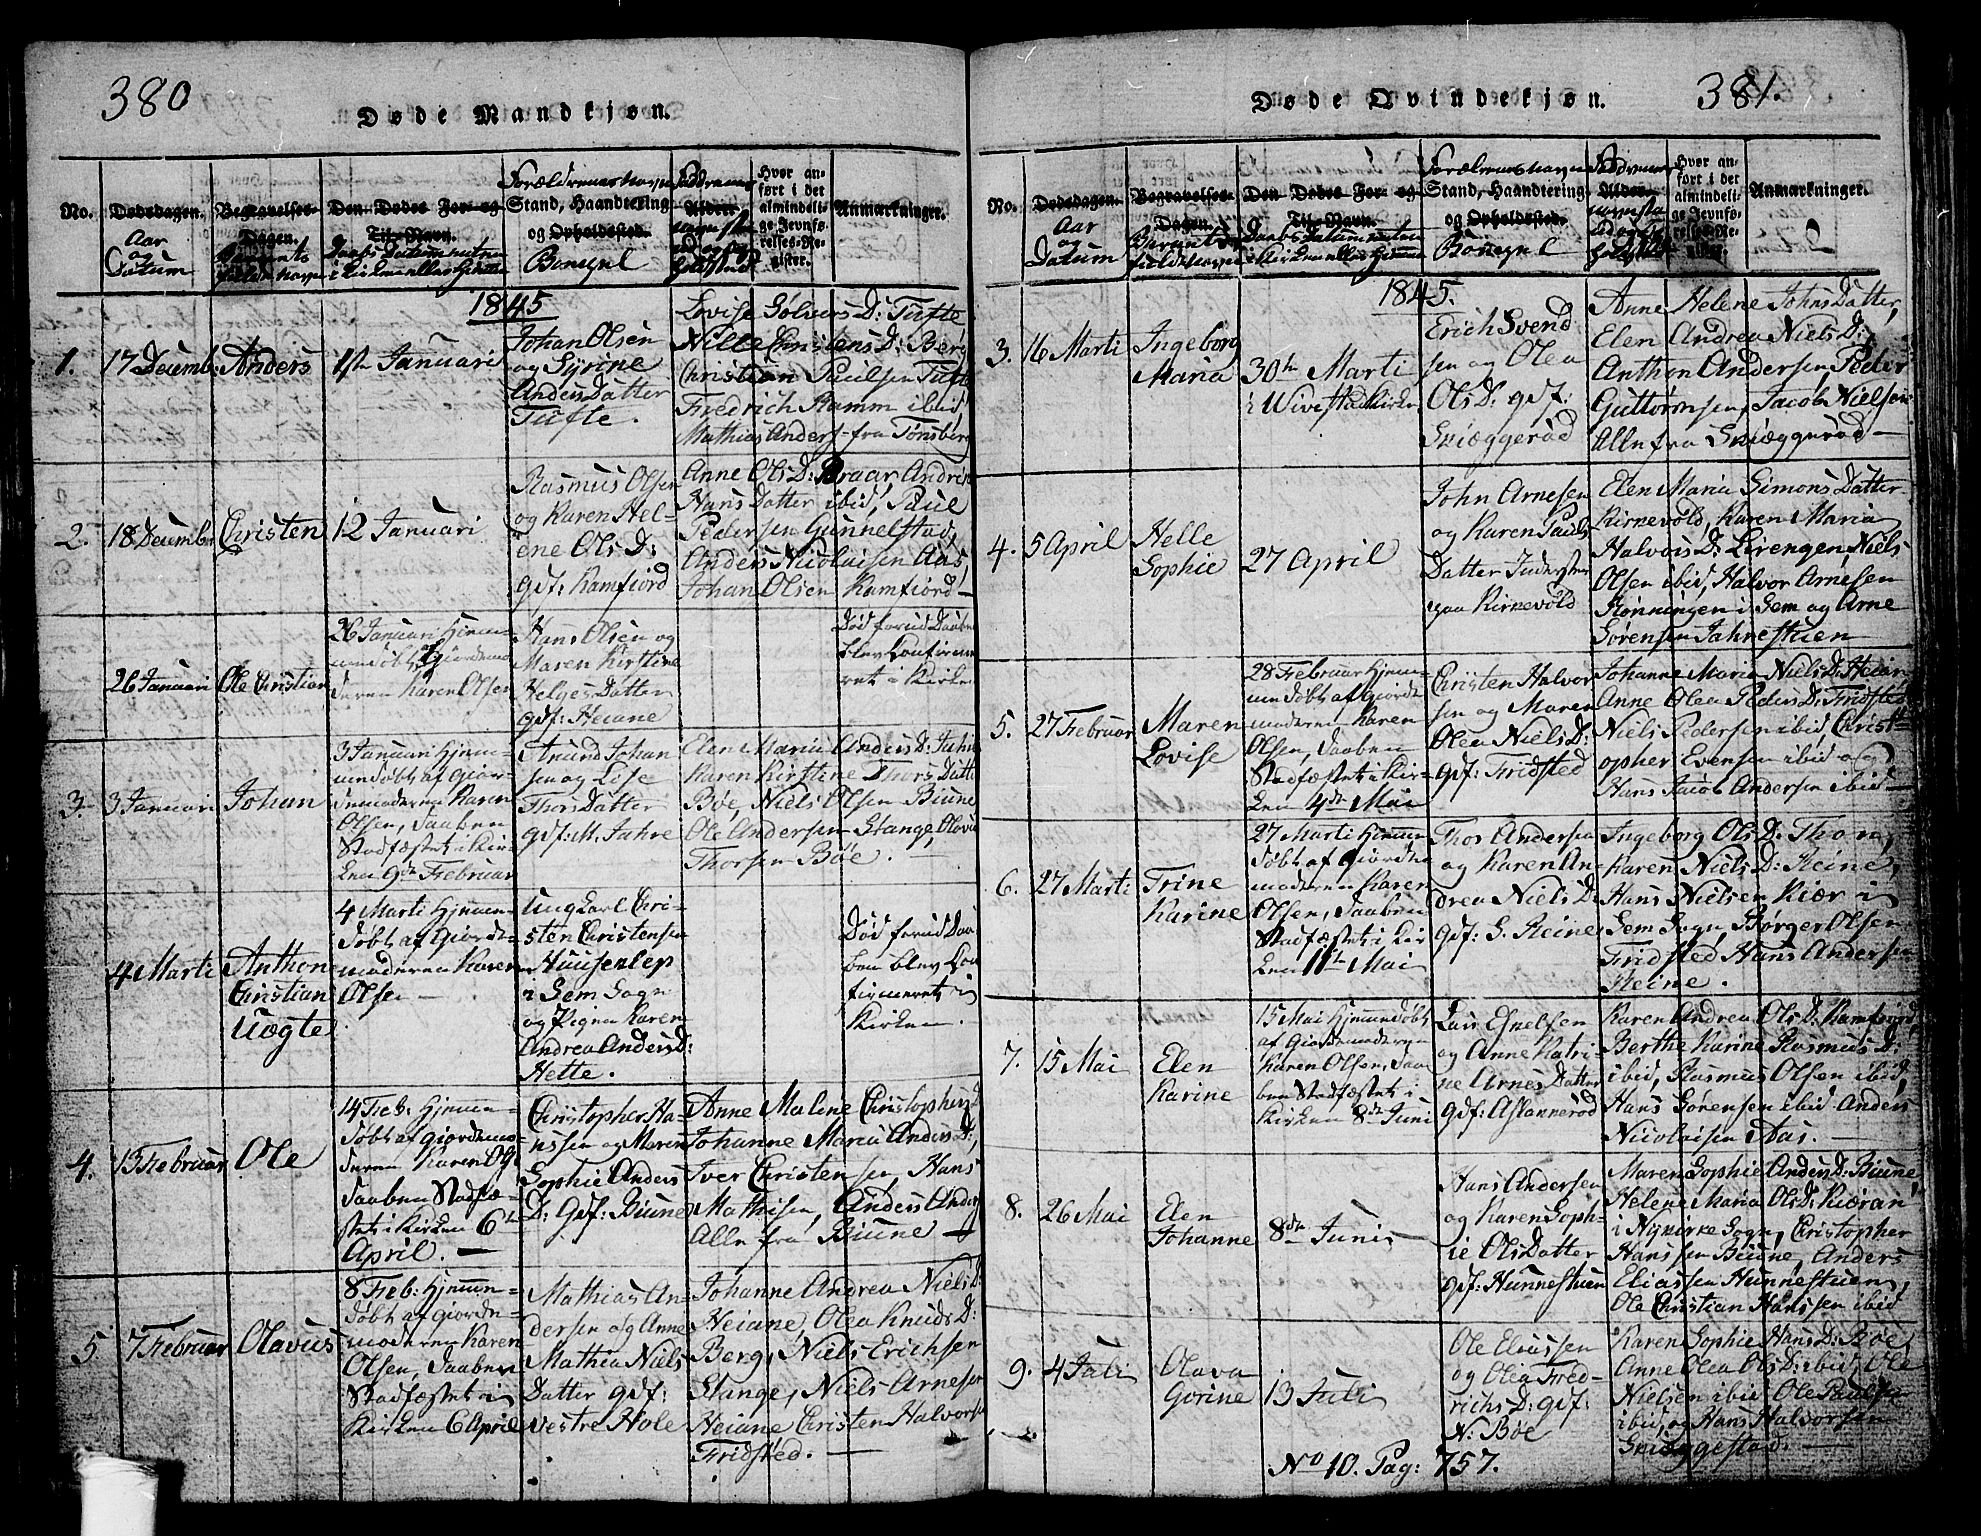 380
Døde Mandkjøn.
No.
Dødsdagen.
Aar
og
Datum
Begravelses-
Dagen.
Barnets
fulde Navn
Den Dødes For- og
Til-Navn.
Daabs Datum enten
i Kirken eller Hjemme
Forældrenes Navn
Stand, Haandtering
og Opholdssted.
Bopæl
Faddernes
Alder.
Navn, Stand
og Opholdssted
Hvor an-
ført i det
almindeli-
ge Jevnfø-
relses-Re-
gister.
Anmærkninger.
1845
1.
17 Decemb:
Anders
1ste Januari
Johan Olsen
og Syrine
Anders Datter
Tufte.
Lovise Sølvers D: Tufte
Nille Christens D: Berg
Christian Paulsen Tufte
Fredrich Ramm ibid
Mathias Anders- fra Tønsberg
2.
18 Decembr
Christen
12 Januari
Rasmus Olsen
og Karen Hel-
ene Ols D:
gdf: Ramfiord
Anne Ols D: Braar, Andrea
Hans Datter ibid, Paul
Pedersen Gunnelstad,
Anders Nicolaisen Aas,
Johan Olsen Ramfiord –
26 Januari
Ole Christian
26 Januari Hjem-
mendøbt af Giordemo-
deren Karen Olsen
Hans Olsen og
Maren Kirstine
Helges Datter
gdf: Heiane
Død forud Daaben
blev Confirme-
ret i Kirken
3.
3 Januari
Johan
3 Januari Hjem-
mendøbt af Gior-
demoderen Karen
Olsen, Daaben
Stadfæstet i Kir-
ken 9de Februar
Amund Johan
sen og Lise
Thors Datter
gdf: M. Jahre
Elen Maria Anders D: Jahre
Karen Kirstine Thors Datter
Bøe, Niels Olsen Biune
Ole Andersen Stange, Olava
Thorsen Bøe. –
4 Marti
Anthon
Christian
Uogte
4 Marti Hjemmen-
døbt af Giorde-
moderen Karen
Olsen –
Ungkarl Chri-
sten Christensen
Haugenlep
i Sem Sogn
og Pigen Karen
Andrea Anders D:
Hette.
Død forud Daa-
ben blev Con-
firmeret i
Kirken.
4.
13 Februar
Ole
14 Feb: Hjemmen-
døbt af Giordemo-
deren Karen Ols:
Daaben Stadfæ-
stet i Kirken 6te
April. –
Christopher Ha-
nssen og Maren
Sophie Anders
D: gdf: Biune
Anne Malene Christophers D
Johanne Maria Anders D:,
Iver Christensen, Hans
Mathisen, Anders Anders
Alle fra Biune –
5
7 Februar
Olavus
8 Feb: Hjemmen-
døbt af Giorde-
moderen Karen
Olsen, Daaben
Stadfæstet i
Kirken 6 April
Mathias An-
dersen og Anne
Mathia Niels
Datter gdf:
Vestre Hole
Johanne Andrea Niels D:
Heiane, Olea Knuds D:
Berg, Niels Erichsen
Stange, Niels Arnesen
Heiane Christen Halvorsen
Fridsted. –
381.
Døde Qvindekjøn.
No.
Dødsdagen.
Aar
og
Datum
Begravelses-
Dagen.
Barnets
fulde Navn
Den Dødes For- og
Til-Navn.
Daabs Datum enten
i Kirken eller Hjemme
Forældrenes Navn
Stand, Haandtering
og Opholdssted.
Bopæl
Faddernes
Alder.
Navn, Stand
og Opholdssted
Hvor an-
ført i det
almindeli-
ge Jevnfø-
relses-Re-
gister.
Anmærkninger.
1845.
3.
16 Marti
Ingeborg
Maria
30te Marti
i Vivestad Kirke
Erich Svend
sen og Olea
Ols D: gdf:
Skiæggerød
Anne Helene Johns Datter,
Elen Andrea Niels D:
Anthon Andersen, Peder
Guttormsen, Jacob Nielsen
Alle fra Skiæggerød –
4.
5 April
Helle
Sophie
27 April
John Arnesen
og Karen Pauls
Datter Inderster
paa Kirkevold
Elen Maria Simons Datter
Kirkevold, Karen Maria
Halvors D: Lirengen, Niels
Olsen ibid, Halvor Arnesen
Rønningen i Sem og Arne
Sørensen Jahrestuen
5.
27 Februar
Maren
Lovise
28 Februar Hjem-
men døbt af Giorde-
moderen Karen
Olsen, Daaben
Stadfæstet i Kir-
ken 4de Mai
Christen Halvor
sen og Maren
Olea Niels D:
gdf: Fridsted
Johanne Maria Niels D: Heian
Anne Olea Peders D: Fridsted
Niels Pedersen ibid, Christ-
opher Evensen ibid og
Hans Jacob Andersen ibid –
6.
27 Marti
Trine
Karine
27 Marti Hjemmen-
døbt af Giorde-
moderen Karen
Olsen, Daaben
Stadfæstet i Kir-
ken 11te Mai
Thor Andersen
og Karen An-
drea Niels D:
gdf: S. Reine
Ingeborg Ols D: Thon,
Karen Niels D: Reine,
Hans Nielsen Kiær i
Sem Sogn, Børger Olsen
Fridsted, Hans Andersen
Reine.
7.
15 Mai
Elen
Karine
15 Mai Hjemmendøbt
af Giordemoderen
Karen Olsen, Daa-
ben Stadfæstet i
Kirken 8de Juni
Lars
og Anne Katri-
ne Arnes Datter
gdf: Aslannerød
Karen Andrea Ols D: Ramfiord,
Berthe Karine Rasmus D:
ibid, Rasmus Olsen ibid,
Hans Sørensen ibid Anders
Nicolaisen Aas. –
8.
26 Mai
Elen
Johanne
8de Juni
Hans Andersen
og Karen Soph-
ie Ols Datter
gdf: Hunnestuen
Maren Sophie Anders D: Biune,
Helene Maria Ols D: Kiæran
i Nykirke Sogn, Christopher
Hanssen Biune, Anders
Eliassen Hunnestuen,
Ole Christian Hanssen ibid
9.
4 Juli
Olava
Gorine
13 Juli
Ole Eliassen
og Olea Fred-
richs D: gdf:
N: Bøe
Karen Sophie Hans D: Bøe,
Anne Olea Ols D: ibid, Ole
Nielsen ibid, Ole Paulsen
ibid, og Hans Halvorsen
Skiæggestad. –
No 10. Pag: 757.